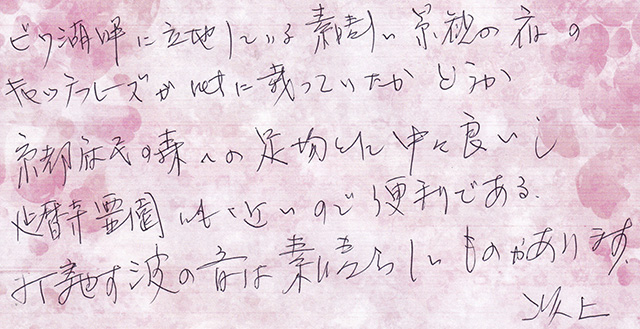 ビワ湖畔に立地している素晴しい景観の宿の
キャッチフレーズがnetに載っていたかどうか
京都府民の森への足場としては中々良いし
延暦寺霊園にも近いので便利である.
打寄せす波の音は素晴らしいものがあります
以上